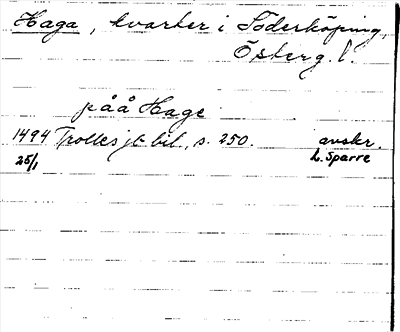 Haga, kvarter i Söderköping,
Östergl.
påå Hage
1494 Trolles jb bil, s. 250. avskr.
25/1 L. Sparre